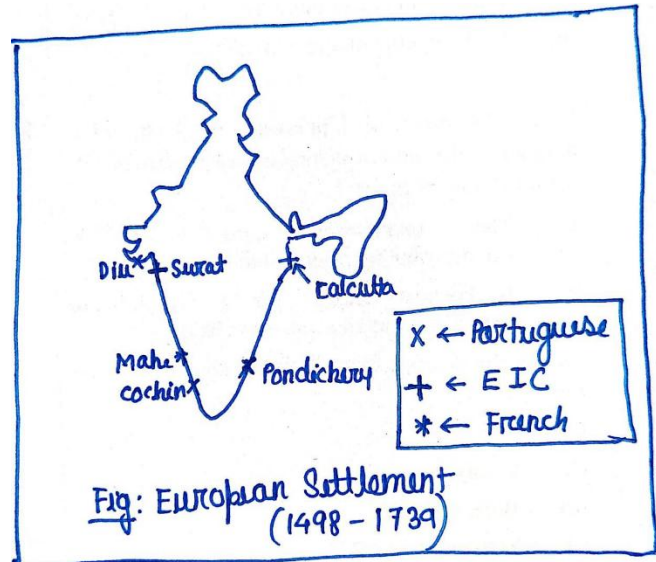 Diu
Surat
Calcutta
Mahe
cochin
Pondichery
x ← Portuguese
+ ← EIC
* ← French
Fig: European Settlement
(1498 - 1739)